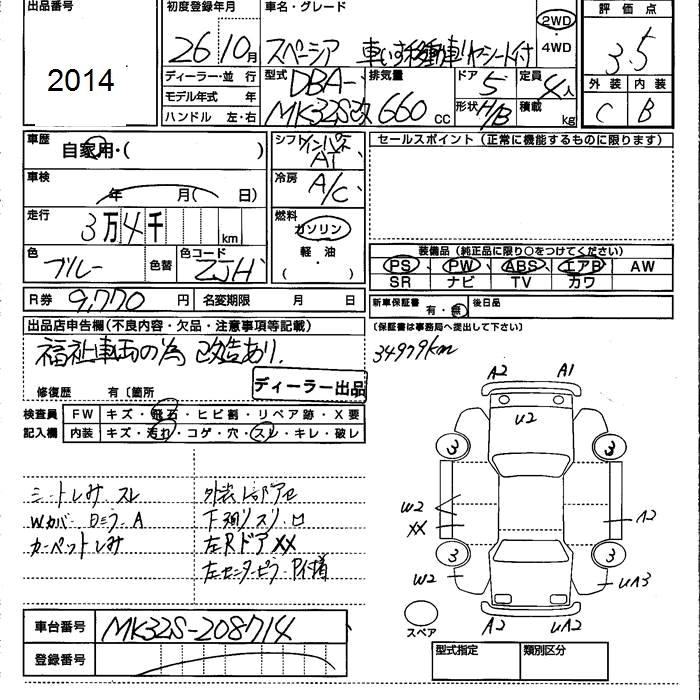 出品番号 初度登録年月 車名・グレード 評価点
2014 26 10月 スペーシア 車いす移動車リヤシート付 2WD ・ 4WD 3.5
ディーラー・並行 型式 DBA- 排気量 ドア 5 定員 4人 外装 内装
モデル年式 年 MK32S改 660 cc 形状 H/B 積載 kg C B
ハンドル 左・右
車歴 自家用・( ) シフト インパネ AT セールスポイント(正常に機能するものに限ります)
車検 年 月( 日) 冷房 A/C
走行 3万4千 km 燃料 ガソリン
軽・油
( ・ )
色 ブルー 色替 色コード ZJH
装備品(純正品に限り○をつけてください)
PS PW ABS エアB AW
SR ナビ TV カワ
R券 9,770 円 名変期限 月 日 新車保証書 有・無 後日品
(保証書は事務局へ提出して下さい)
出品店申告欄(不良内容・欠品・注意事項等記載)
福祉車両の為 改造あり. 34979km
修復歴 有〔箇所 ディーラー出品
検査員 FW キズ・飛石・ヒビ割・リペア跡・X要
記入欄 内装 キズ・汚れ・コゲ・穴・スレ・キレ・破レ
A2 A1
U2
3 3
W2
XX A2
3 3
W2 UA3
A2 UA2
スペア
シートしみ スレ
Wカバー Dミラー A 下廻りスリ
カーペットしみ 左Rドア XX
左センターピラー P付着
車台番号 MK32S-208714
登録番号
型式指定 類別区分